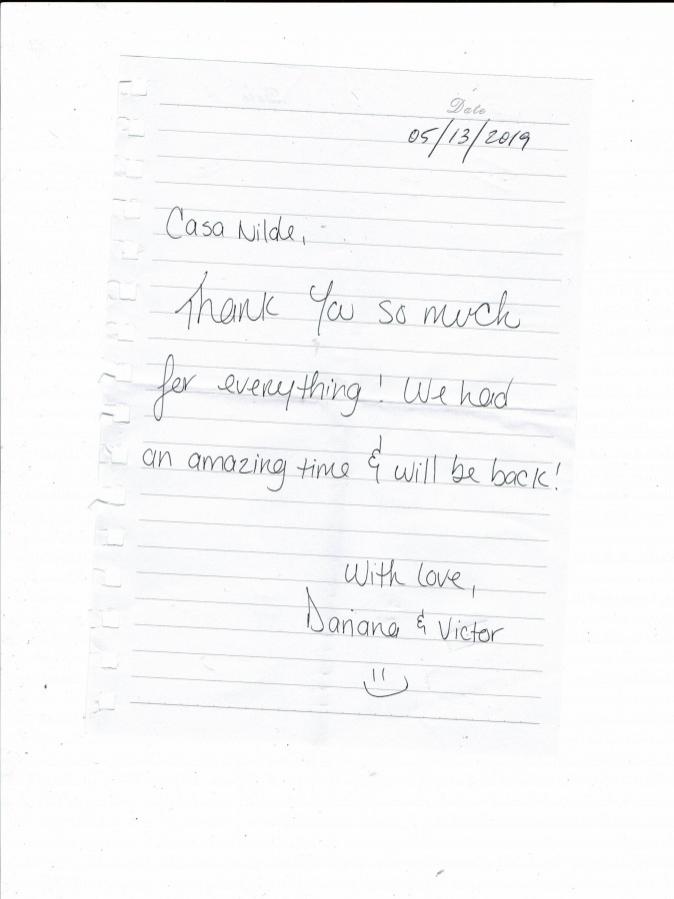 Date
05/13/2019
Casa Nilde,
Thank You so much
for everything! We had
an amazing time & will be back!
With love,
Dariana & Victor